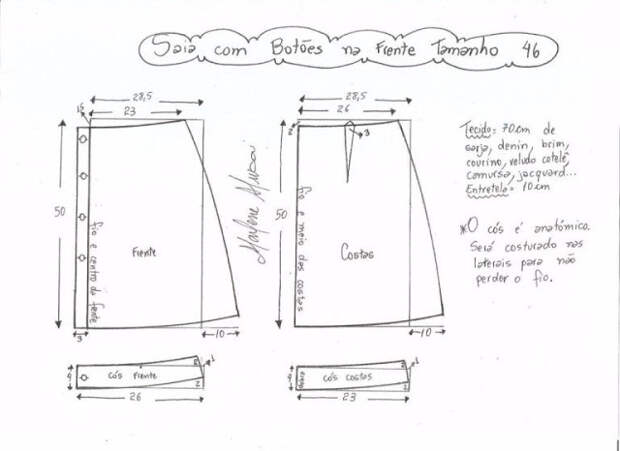 Saia com Botões na Frente Tamanho 46
28,5
23
1,5
50
fio e centro da frente
Frente
3
10
Marlene Mukai
28,5
26
2
3
50
fio e meio das costas
Costas
10
Tecido= 70cm de
sarja, denin, brim,
courino, veludo cotelê,
camurça, jacquard...
Entretela= 10cm
*O cós é anatómico.
Será costurado nas
laterais para não
perder o fio.
4
cós frente
2
1
2
26
4
dobra
cós costas
2
1
2
23